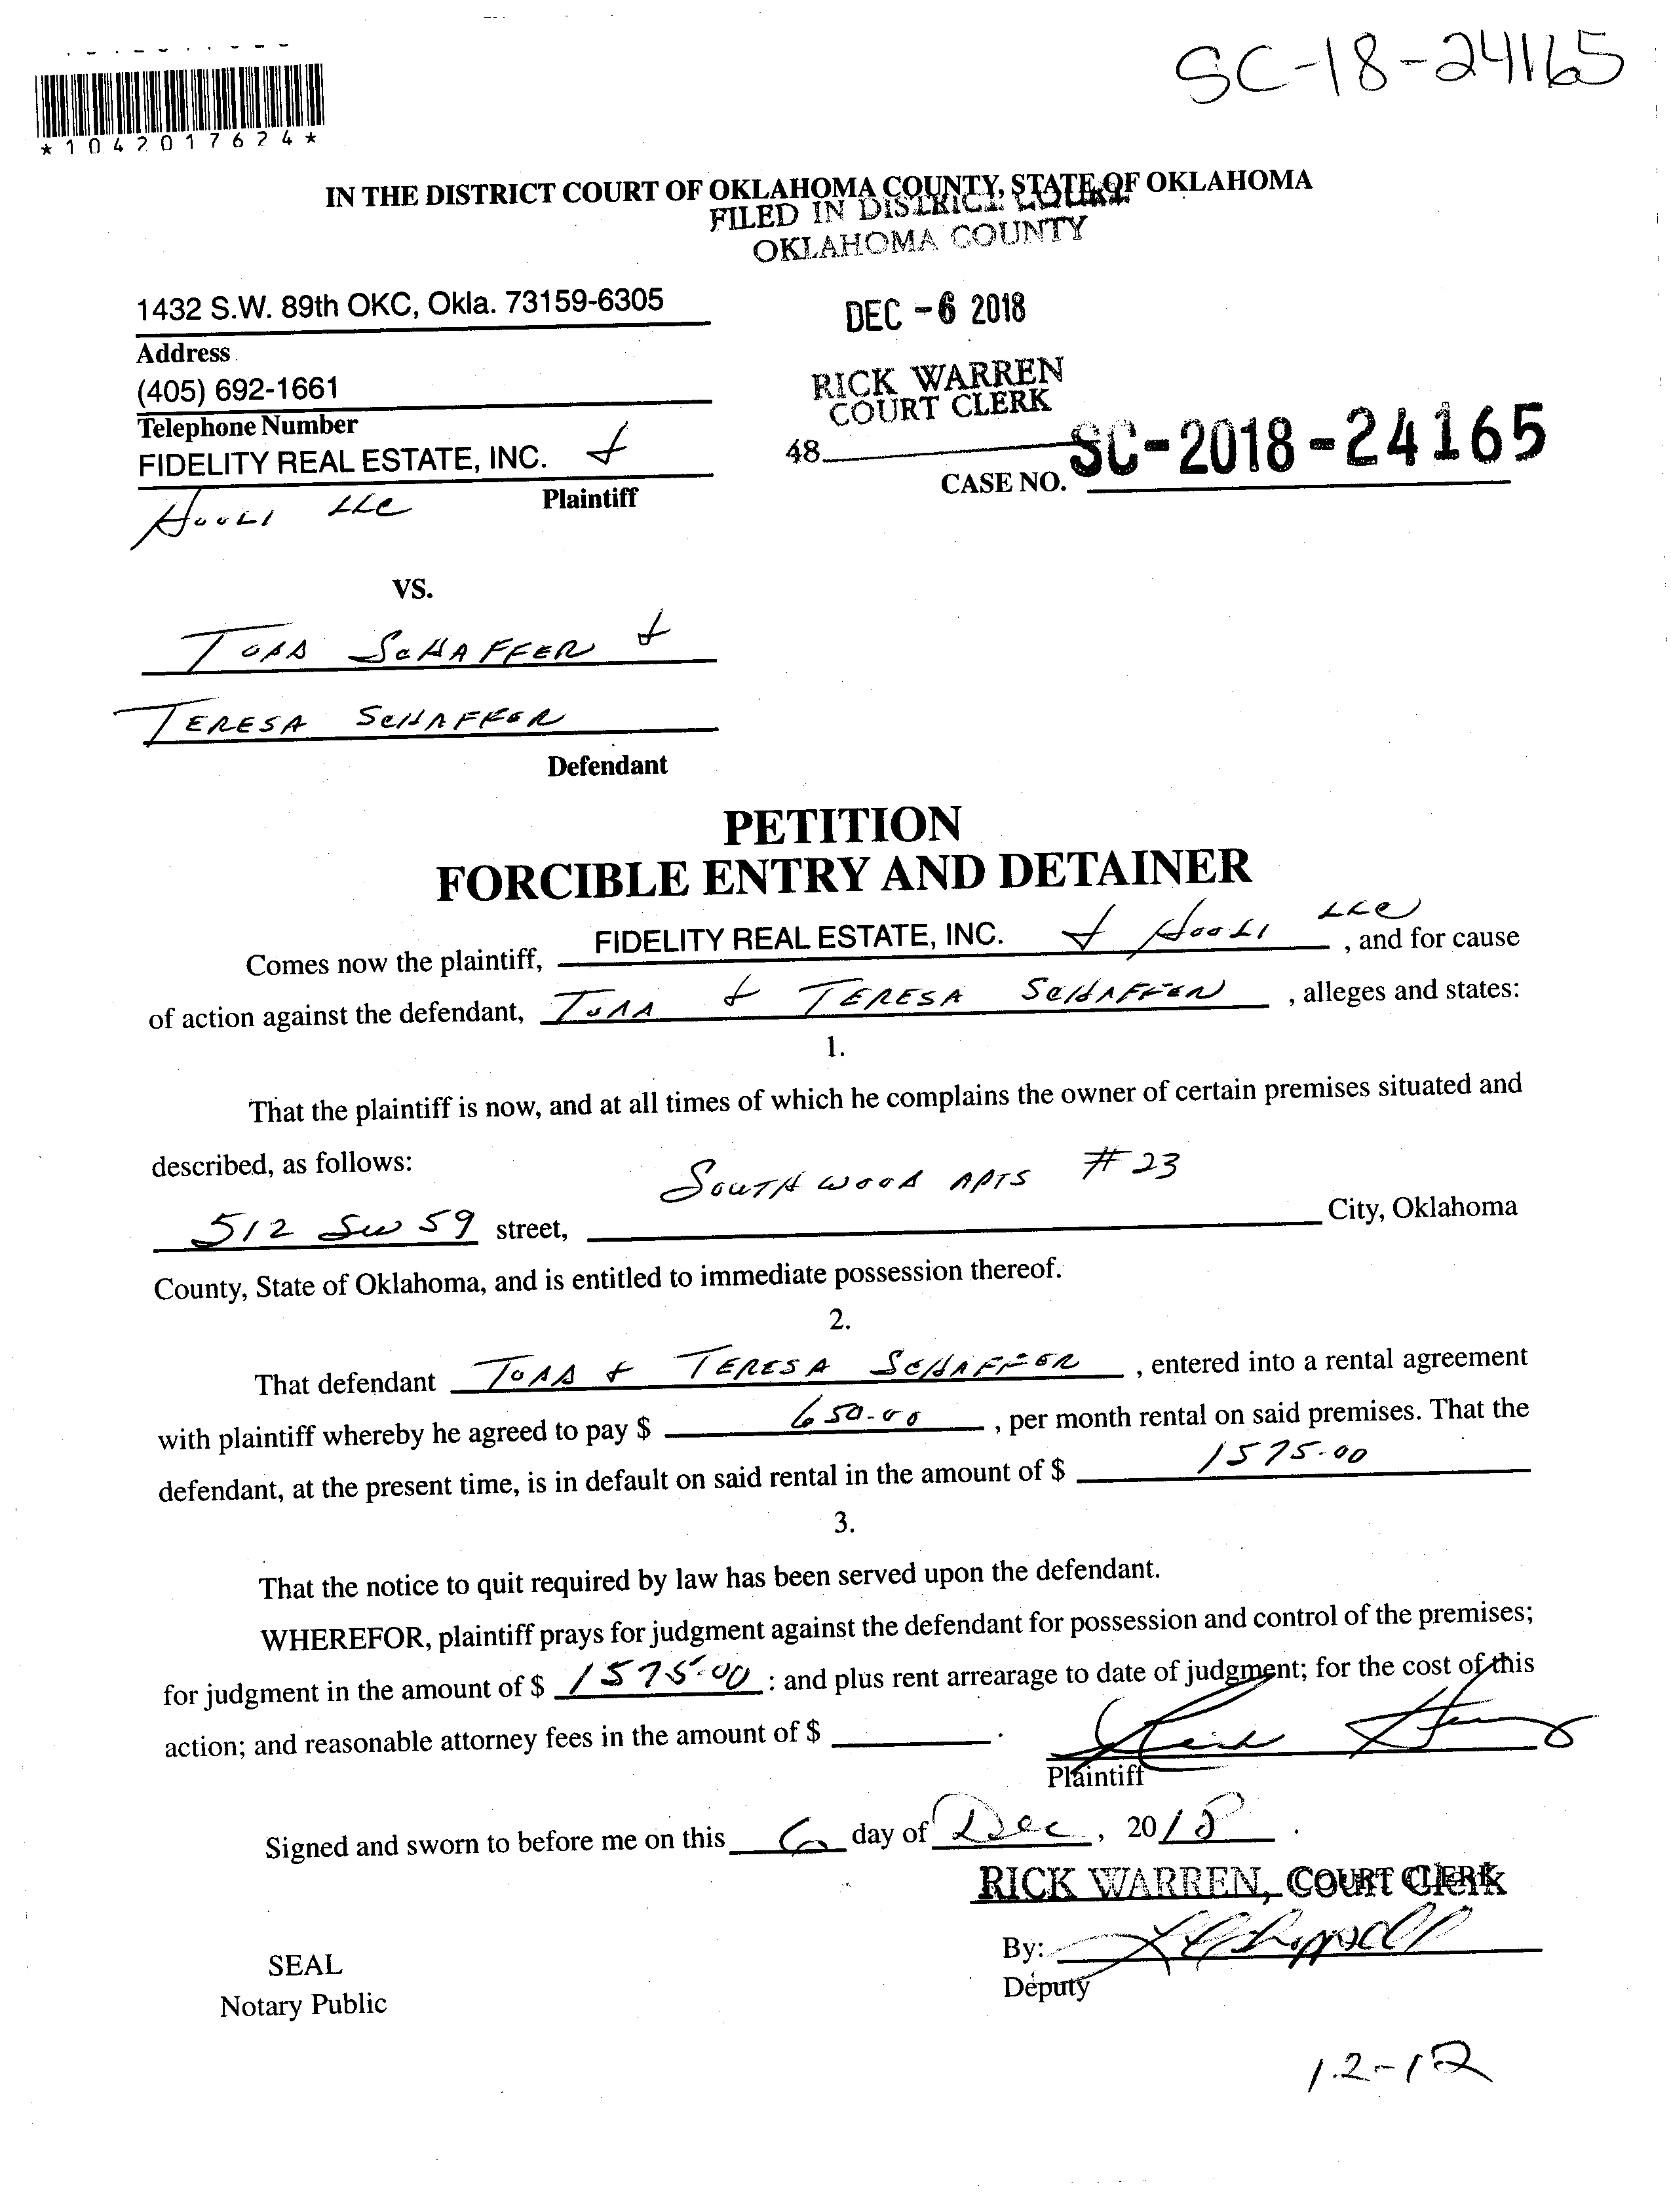 SC-18-24165
*1042017624*
IN THE DISTRICT COURT OF OKLAHOMA COUNTY, STATE OF OKLAHOMA
FILED IN DISTRICT COURT
OKLAHOMA COUNTY
1432 S.W. 89th OKC, Okla. 73159-6305
DEC -6 2018
Address
(405) 692-1661
RICK WARREN
COURT CLERK
Telephone Number
48
FIDELITY REAL ESTATE, INC. &
CASE NO. SC-2018-24165
Plaintiff
HOOLI LLC
VS.
TODD SCHAFFER &
TERESA SCHAFFER
Defendant
PETITION
FORCIBLE ENTRY AND DETAINER
Comes now the plaintiff, FIDELITY REAL ESTATE, INC. & HOOLI LLC, and for cause
of action against the defendant, TODD & TERESA SCHAFFER, alleges and states:
1.
That the plaintiff is now, and at all times of which he complains the owner of certain premises situated and
described, as follows:
SOUTHWOOD APTS #23
512 SW 59 street, City, Oklahoma
County, State of Oklahoma, and is entitled to immediate possession thereof.
2.
That defendant TODD & TERESA SCHAFFER, entered into a rental agreement
with plaintiff whereby he agreed to pay $ 650.00, per month rental on said premises. That the
defendant, at the present time, is in default on said rental in the amount of $ 1575.00
3.
That the notice to quit required by law has been served upon the defendant.
WHEREFOR, plaintiff prays for judgment against the defendant for possession and control of the premises;
for judgment in the amount of $ 1575.00 : and plus rent arrearage to date of judgment; for the cost of this
action; and reasonable attorney fees in the amount of $ .
Plaintiff
Signed and sworn to before me on this 6 day of Dec, 2018.
RICK WARREN, COURT CLERK
By:
Deputy
SEAL
Notary Public
12-12